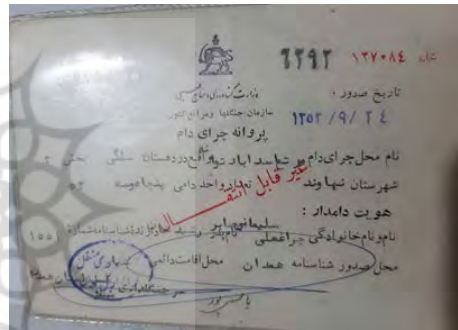 ۶۲۹۲ ۱۲۷۰۸٤ شماره
تاریخ صدور : ۱۳۵۲/۹/۲٤
وزارت کشاورزی و منابع طبیعی
سازمان جنگلها و مراتع کشور
پروانه چرای دام
نام محل چرای دام اسداباد واقع در دهستان سلگی بخش ۲
شهرستان نهاوند تعداد واحد دامی پنجاه و سه ۵۳
غیر قابل انتقال
هویت دامدار :
سلیمانی
نام و نام خانوادگی چراغعلی شناسنامه شماره ۱۵۵
محل صدور شناسنامه همدان محل اقامت دائمی